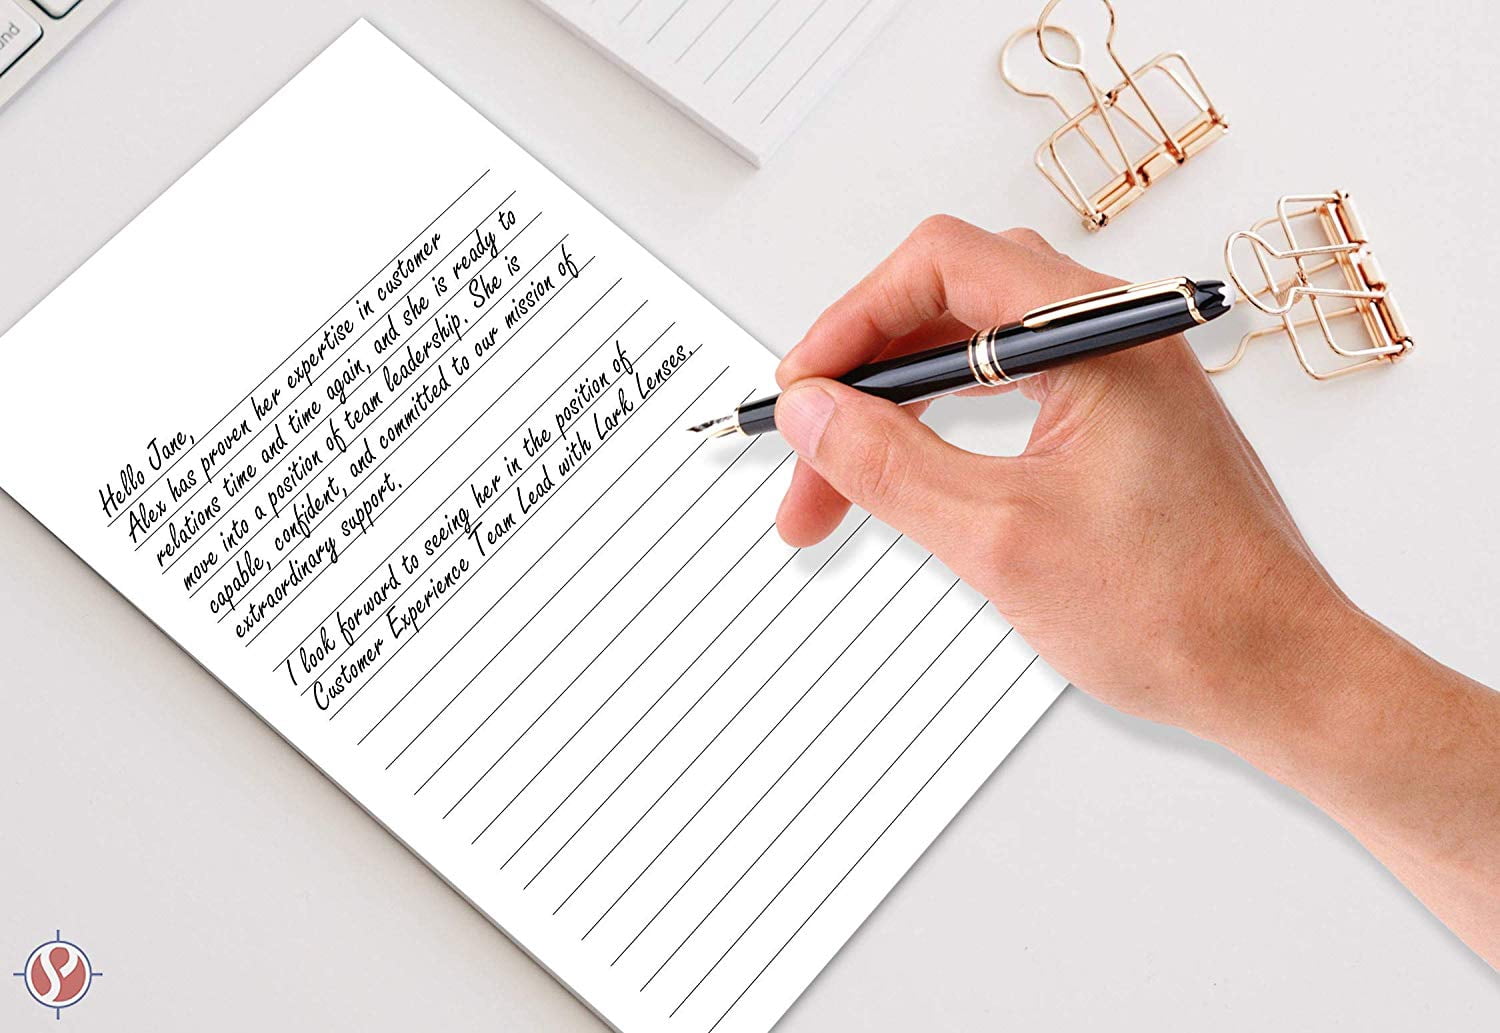 Hello Jane,
Alex has proven her expertise in customer
relations time and time again, and she is ready to
move into a position of team leadership. She is
capable, confident, and committed to our mission of
extraordinary support.
I look forward to seeing her in the position of
Customer Experience Team Lead with Lark Lenses.